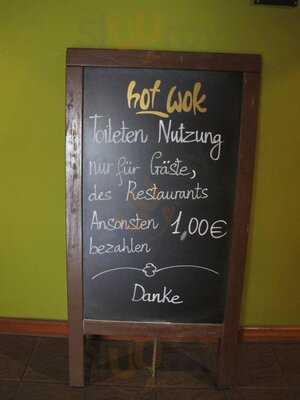 hot wok
Toileten Nutzung
nur für Gäste,
des Restaurants
Ansonsten 1,00€
bezahlen
Danke